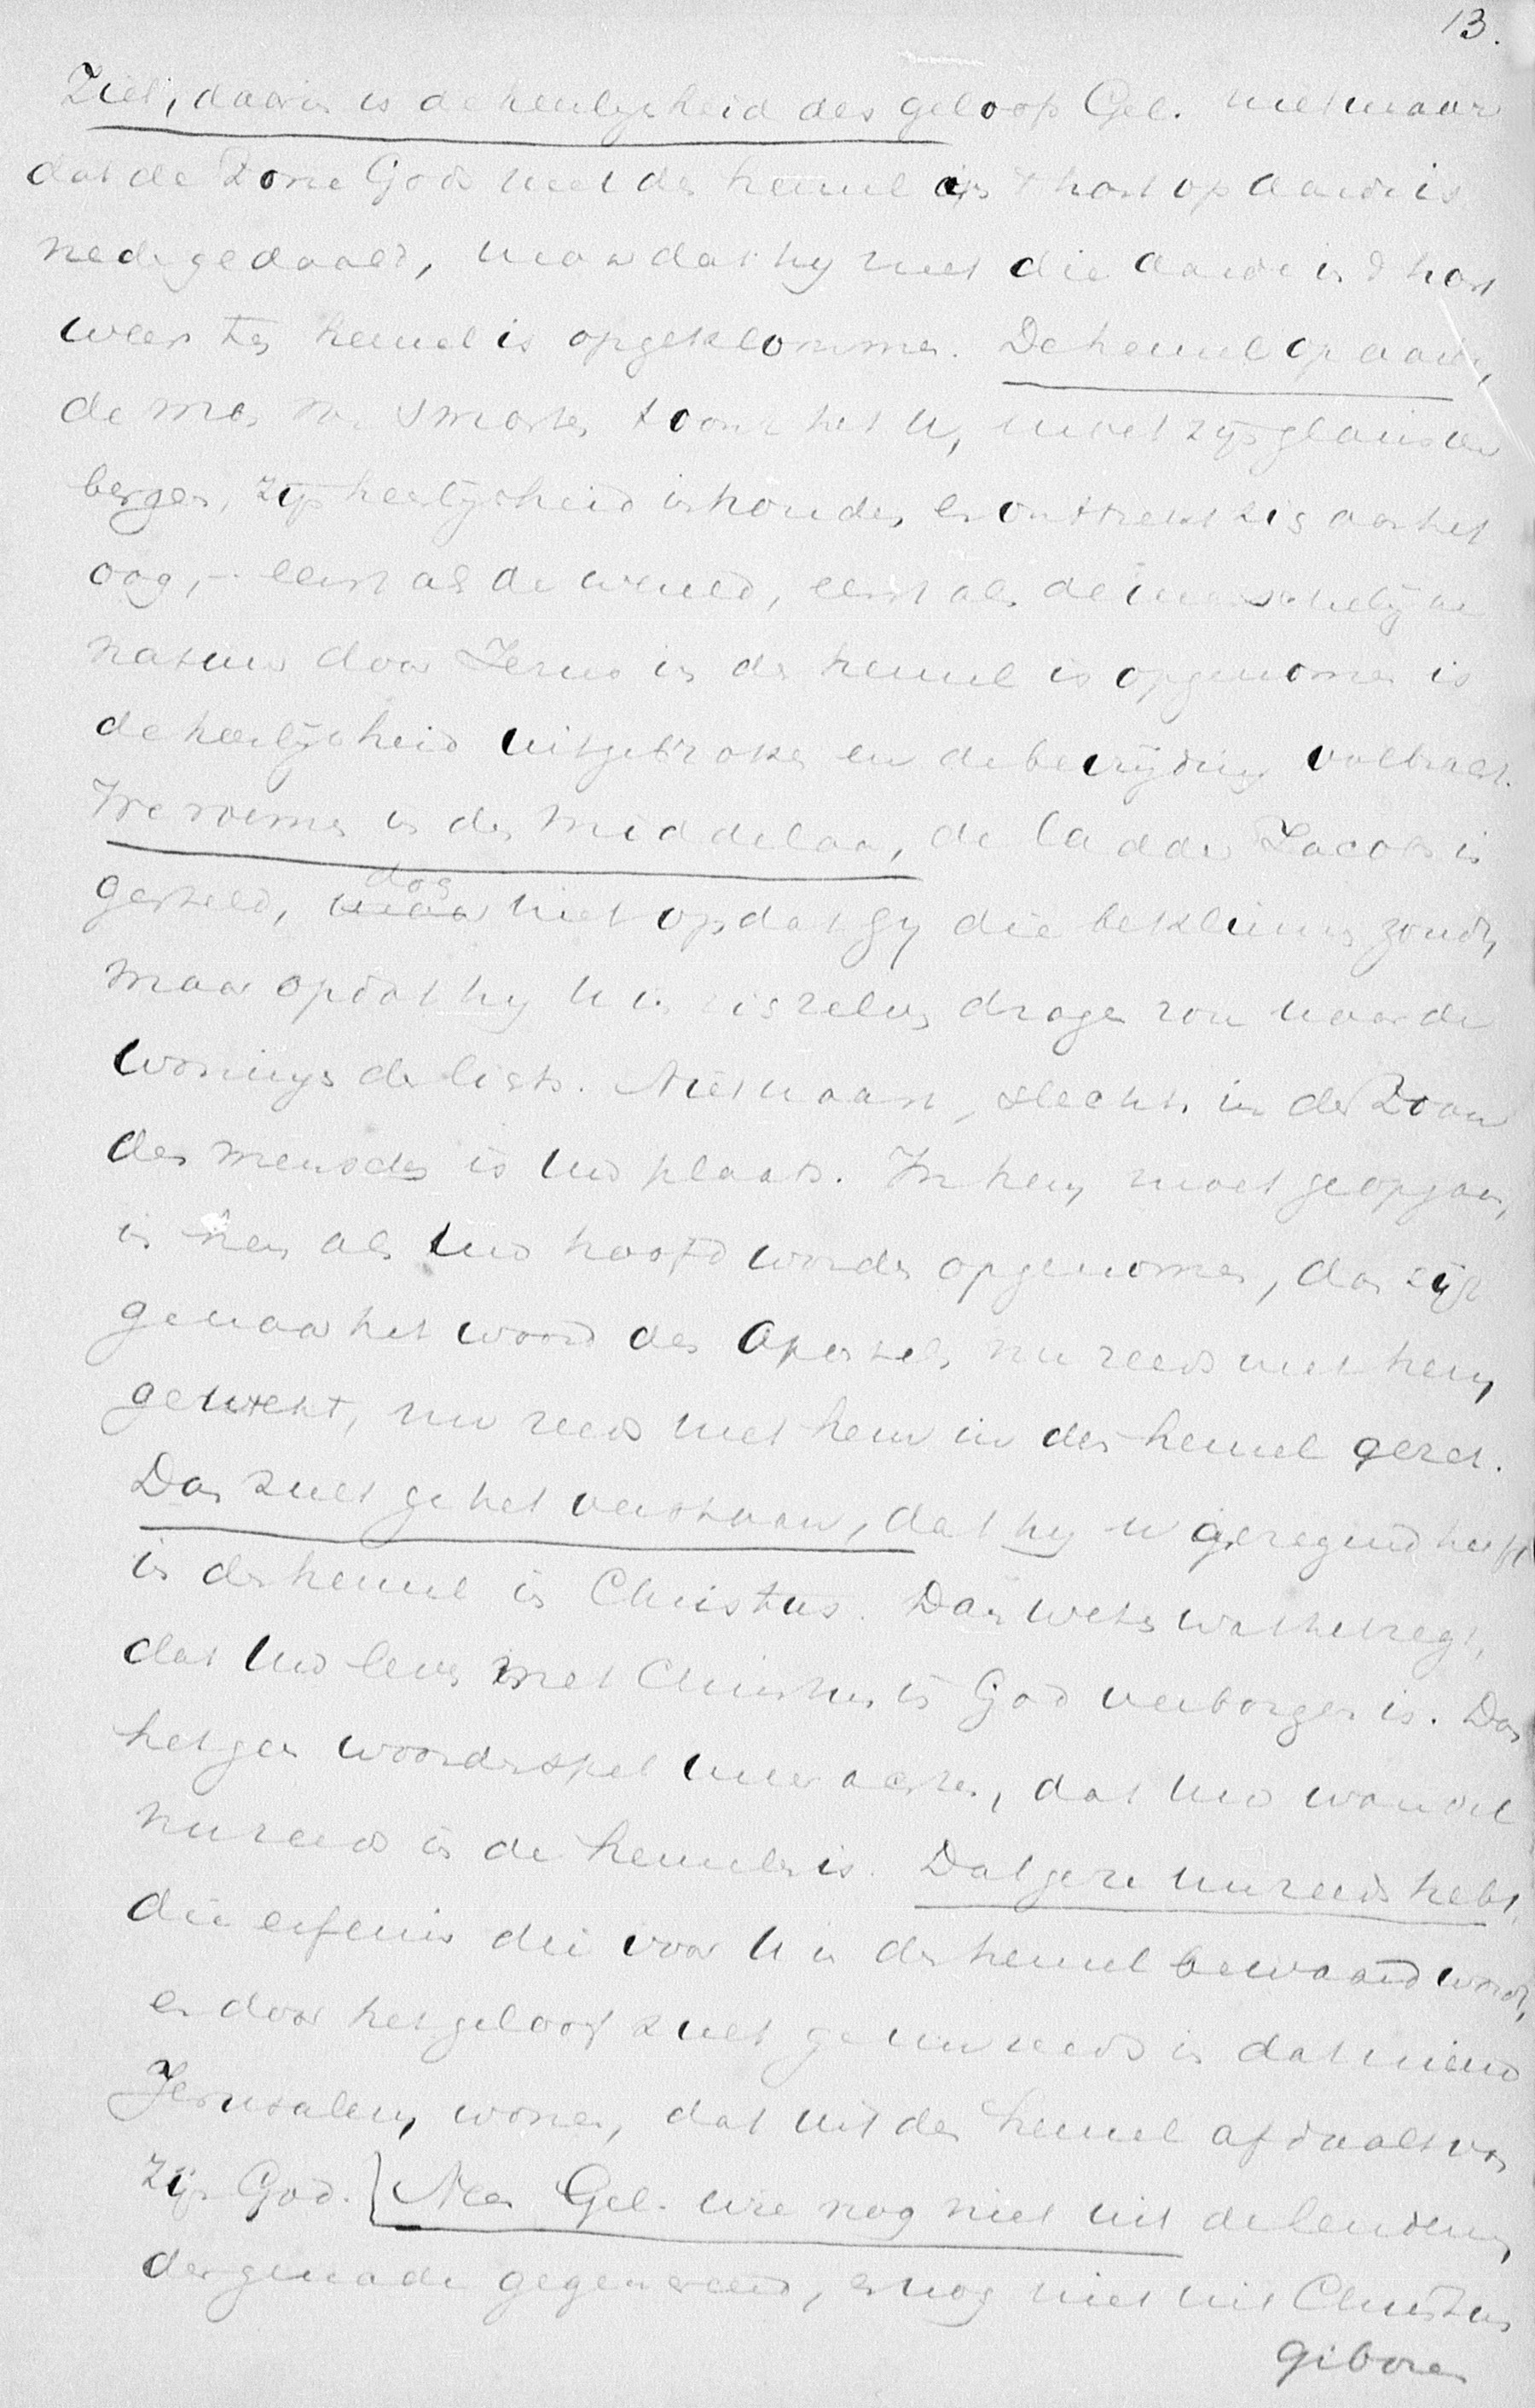 13.
Ziet, daarin is de heerlijkheid des geloofs Gel. niet maar
dat de Zone Gods uit den hemel op 't hart op aarde is
nedergedaald, maar dat hy met die aarde in 't hart
weer ten hemel is opgeklommen. De hemel op aarde,
de man van smarten toont het u, moet zijn glans ver
bergen, zijn heerlijkheid inhouden en onttrekt zig aan het
oog, - eerst als de wereld, eerst als de menschelijke
natuur door Jezus in den hemel is opgenomen is
de heerlijkheid uitgebroken en de bevrijding volbracht.
We roemen in den Middelaar, de ladder Jacobs is
gesteld, maar dog niet opdat gy die beklimmen zoudt,
maar opdat hy u in zig zelven dragen zou naar de
woning des lichts. Niet naast, slechts in den Zoon
des menschen is uw plaats. In hem moet ge opgaan,
in hem als uw hoofd worden opgenomen, dan zijt
ge naar het woord des Apostels nu reeds met hem
gewekt, nu reeds met hem in den hemel gezet.
Dan zult ge het verstaan, dat hy u gezegend heeft
in den hemel in Christus. Dan weten wat het zegt,
dat uw leven met Christus in God verborgen is. Dan
het geen woordenspel meer achten, dat uw wandel
nu reeds in de hemelen is. Dat ge ze nu reeds hebt,
die erfenis die voor u in den hemel bewaard wordt,
en door het geloof zult ge nu reeds in dat nieuw
Jerusalem wonen, dat uit den hemel afdaalt van
zijn God. Neen Gel. wie nog niet uit de lendenen
der genade gegenereerd, en nog niet uit Christus
geboren